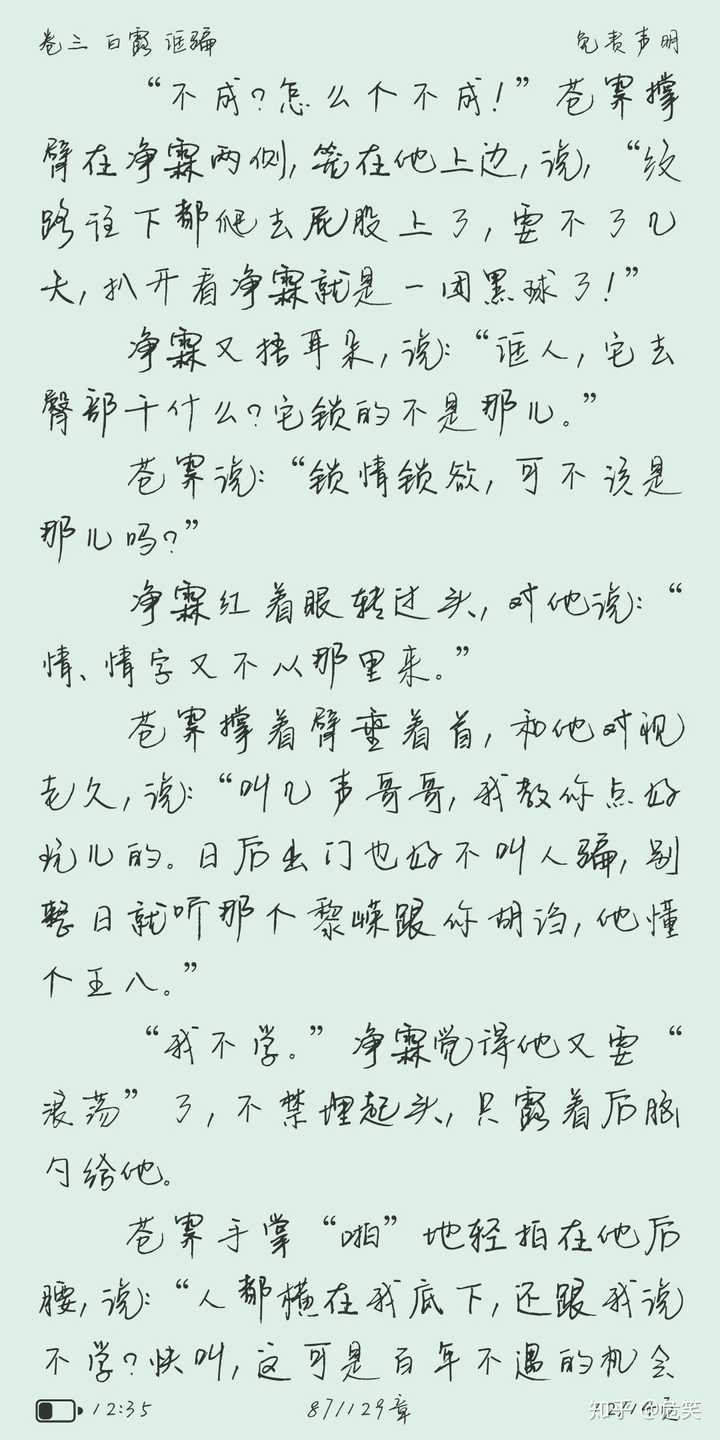 卷三 白露 诓骗 免责声明
“不成？怎么个不成！”苍霁撑
臂在净霖两侧，笼在他上边，说，“纹
路往下都爬去屁股上了，要不了几
天，扒开看净霖就是一团黑球了！”
净霖又捂耳朵，说：“诓人，它去
臀部干什么？它锁的不是那儿。”
苍霁说：“锁情锁欲，可不该是
那儿吗？”
净霖红着眼转过头，对他说：“
情、情字又不从那里来。”
苍霁撑着臂垂着首，和他对视
老久，说：“叫几声哥哥，我教你点好
玩儿的。日后出门也好不叫人骗，别
整日就听那个黎嵘跟你胡诌，他懂
个王八。”
“我不学。”净霖觉得他又要“
浪荡”了，不禁埋起头，只露着后脑
勺给他。
苍霁手掌“啪”地轻拍在他后
腰，说：“人都横在我底下，还跟我说
不学？快叫，这可是百年不遇的机会
12:35 87/129章 12/14
知乎 @危笑